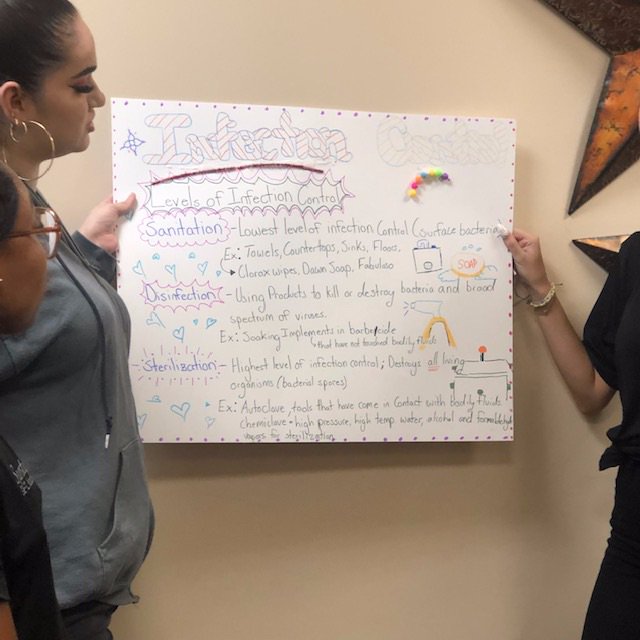 Infection Control
Levels of Infection Control
Sanitation - Lowest level of infection control (surface bacteria
Ex: Towels, Countertops, Sinks, Floors,
Clorox wipes, Dawn Soap, Fabuloso
SOAP
Disinfection - Using Products to kill or destroy bacteria and broad
spectrum of viruses.
Ex: Soaking Implements in barbicide
that have not touched bodily fluids
Sterilization - Highest level of infection control; Destroys all living
organisms (bacterial spores)
Ex: Autoclave, tools that have come in contact with bodily fluids
chemiclave - high pressure, high temp water, alcohol and formaldehyde
vapors for sterilization